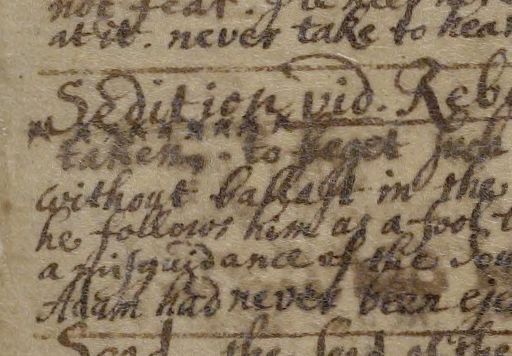 not fear.
at it. never take to hear
Sedition vid. Reb
taken, to beget such
without ballast in the
he follows him as a foot
a misguidance of the sou
Adam had never been eje
Seed the